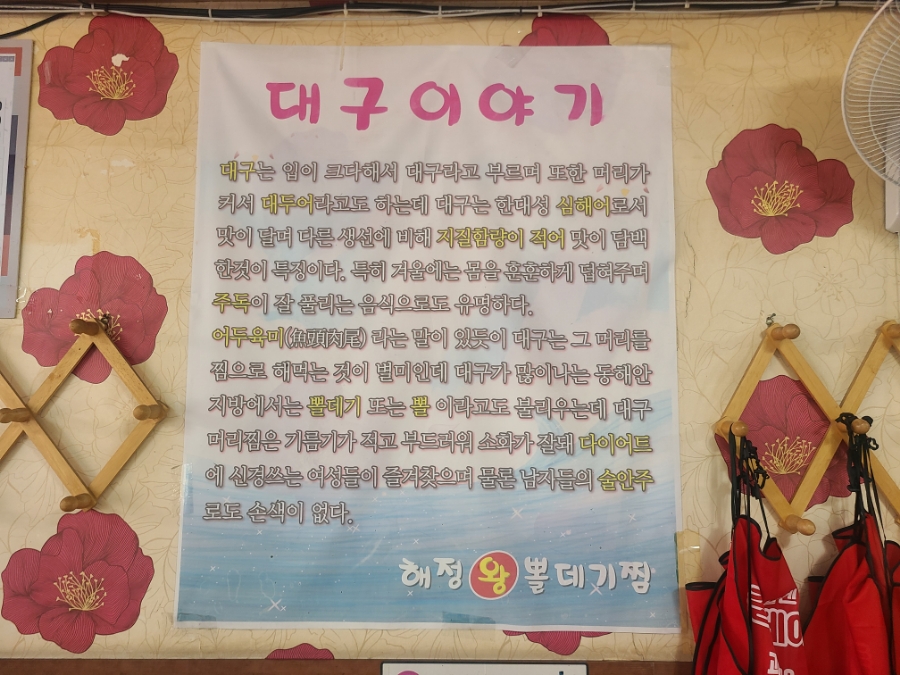 대구이야기
대구는 입이 크다해서 대구라고 부르며 또한 머리가
커서 대두어라고도 하는데 대구는 한대성 심해어로서
맛이 달며 다른 생선에 비해 지질함량이 적어 맛이 담백
한것이 특징이다. 특히 겨울에는 몸을 훈훈하게 덥혀주며
주독이 잘 풀리는 음식으로도 유명하다.
어두육미(魚頭肉尾) 라는 말이 있듯이 대구는 그 머리를
찜으로 해먹는 것이 별미인데 대구가 많이나는 동해안
지방에서는 뽈데기 또는 뽈 이라고도 불리우는데 대구
머리찜은 기름기가 적고 부드러워 소화가 잘돼 다이어트
에 신경쓰는 여성들이 즐겨찾으며 물론 남자들의 술안주
로도 손색이 없다.
해정왕뽈데기찜